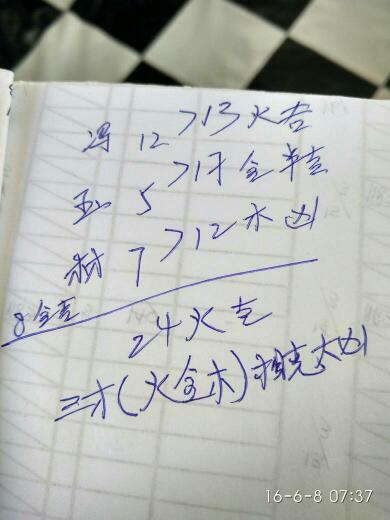 >13火吉
冯 12
>17金半吉
玉 5
>12木凶
树 7
8金吉
24火吉
三才(火金木)相克大凶
16-6-8 07:37